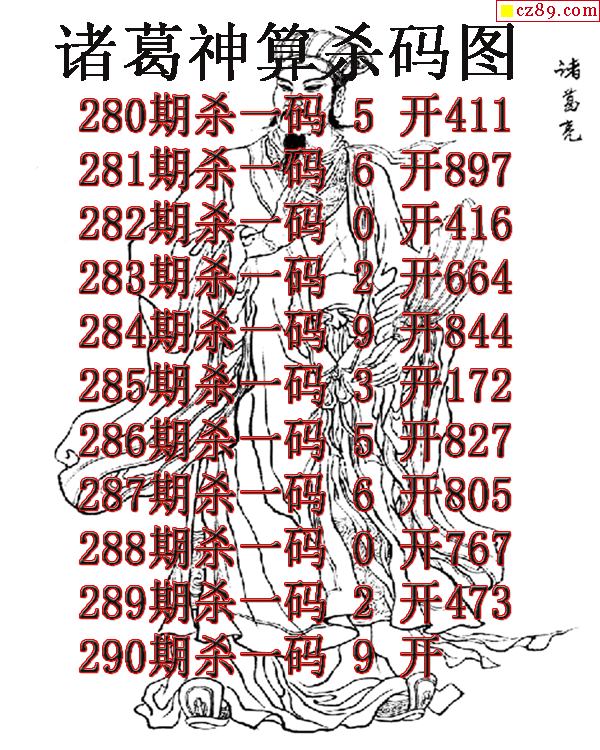 cz89.com
诸葛神算杀码图
诸葛亮
280期杀一码 5 开411
281期杀一码 6 开897
282期杀一码 0 开416
283期杀一码 2 开664
284期杀一码 9 开844
285期杀一码 3 开172
286期杀一码 5 开827
287期杀一码 6 开805
288期杀一码 0 开767
289期杀一码 2 开473
290期杀一码 9 开